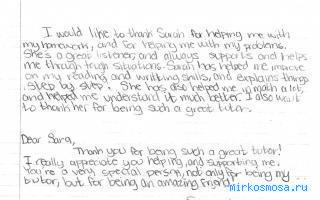 I would like to thank Sarah for helping me with
my homework, and for helping me with my problems.
She's a great listener, and always supports and helps
me through trugh situations. Sarah has helped me improve
on my reading and writting skills, and explains things
step by step. She has also helped me in math a lot,
and helped me understand it much better. I also want
to thank her for being such a great tutor.
Dear Sara,
Thank you for being such a great tutor!
I really appreciate you helping, and supporting me.
You're a very special person, not only for being my
tutor, but for being an amazing friend!
mirkosmosa.ru